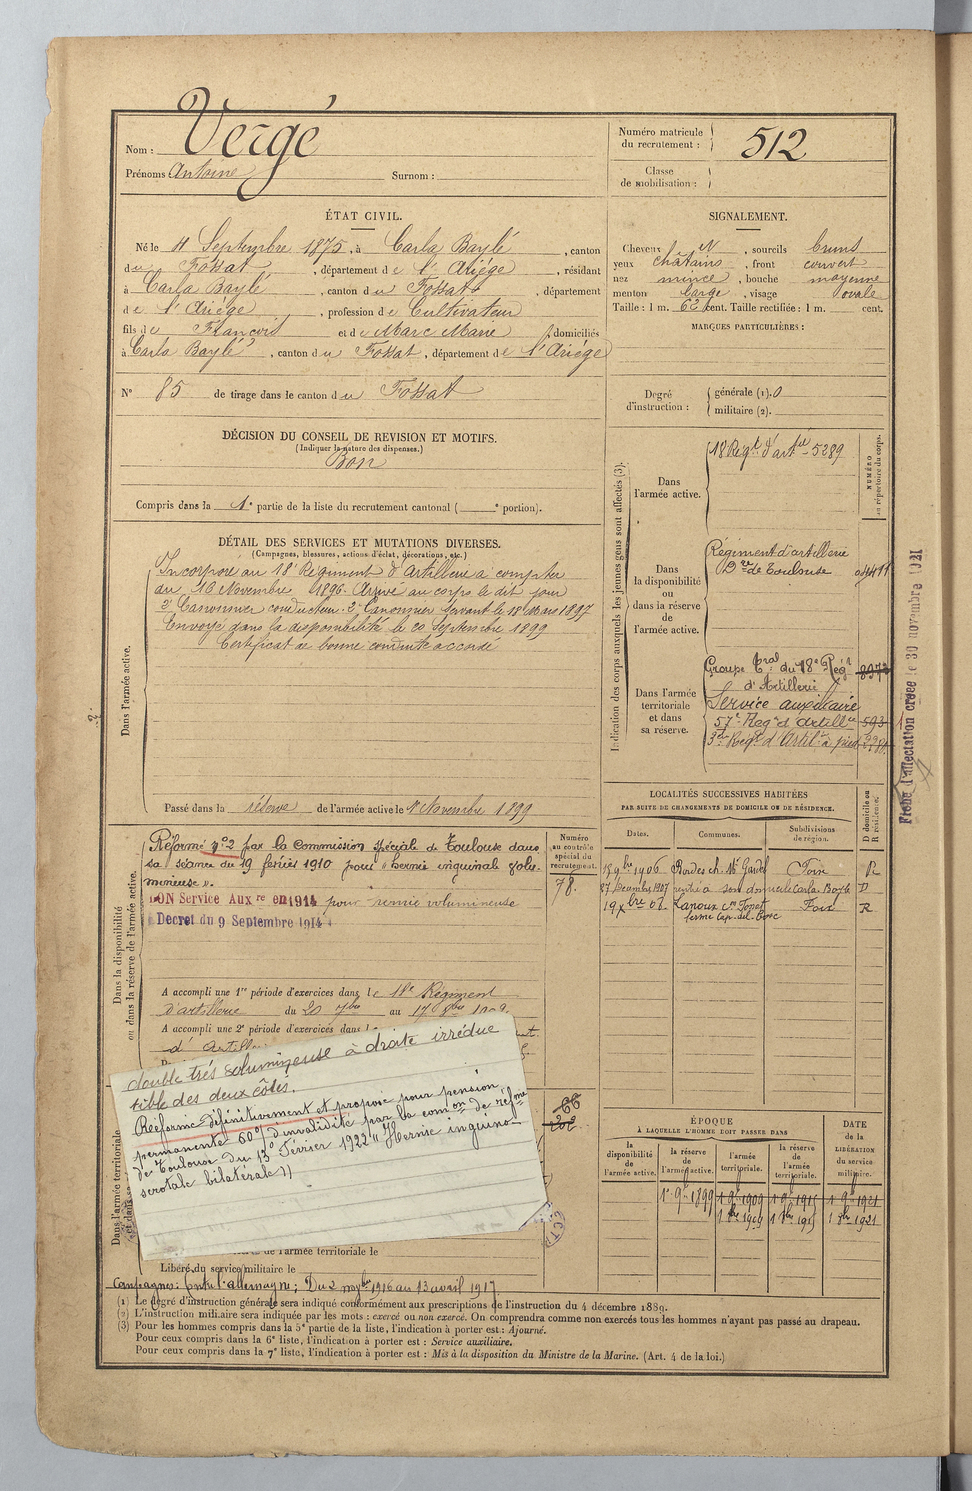 Nom : Vergé
Prénoms Antoine Surnom :
Numéro matricule du recrutement : 512
Classe de mobilisation :
ÉTAT CIVIL.
Né le 11 Septembre 1875, à Carla Baylé, canton
du Fossat, département de l'Ariège, résidant
à Carla Baylé, canton du Fossat, département
de l'Ariège, profession de Cultivateur
fils de François et de Marc Marie domiciliés
à Carla Baylé, canton du Fossat, département de l'Ariège
N° 85 de tirage dans le canton du Fossat
SIGNALEMENT.
Cheveux N, sourcils bruns
yeux châtains, front couvert
nez mince, bouche moyenne
menton large, visage ovale
Taille : 1 m. 62 cent. Taille rectifiée : 1 m. cent.
MARQUES PARTICULIÈRES :
Degré d'instruction : générale (1). 0
militaire (2).
DÉCISION DU CONSEIL DE REVISION ET MOTIFS.
(Indiquer la nature des dispenses.)
Bon
Compris dans la 1e partie de la liste du recrutement cantonal ( e portion).
DÉTAIL DES SERVICES ET MUTATIONS DIVERSES.
(Campagnes, blessures, actions d'éclat, décorations, etc.)
Dans l'armée active.
Incorporé au 18e Régiment d'Artillerie à compter
du 16 Novembre 1896. Arrivé au corps le dit jour
2e Canonnier conducteur. 2e Canonnier servant le 18 Mars 1897
Envoyé dans la disponibilité le 20 Septembre 1899
Certificat de bonne conduite accordé
Passé dans la réserve de l'armée active le 1er Novembre 1899
Indication des corps auxquels les jeunes gens sont affectés (3).
NUMÉRO au répertoire du corps.
Dans l'armée active.
18 Régt d'artie 5289
Dans la disponibilité ou dans la réserve de l'armée active.
Régiment d'artillerie
Don de Toulouse
Dans l'armée territoriale et dans sa réserve.
Groupe Tral du 18e Régt 8973
d'Artillerie
Service auxiliaire
57e Regt d'Artillie 593
3e Regt d'Artie à pied
Fiche d'affectation créée le 30 novembre 1921
LOCALITÉS SUCCESSIVES HABITÉES
PAR SUITE DE CHANGEMENTS DE DOMICILE OU DE RÉSIDENCE.
D domicile ou R résidence.
Dates. Communes. Subdivisions de région.
Foix R
27 Décembre 1907 rentré à son domicile Carla-Bayle D
Foix R
Dans la disponibilité ou dans la réserve de l'armée active.
Numéro au contrôle spécial du recrutement.
78.
Réformé n°2 par la Commission spéciale de Toulouse dans
sa séance du 19 février 1910 pour "hernie inguinal volu-
mineuse".
BON Service Auxre en 1914 pour hernie volumineuse
Décret du 9 Septembre 1914
A accompli une 1re période d'exercices dans le 18e Régiment
d'artillerie du 20 7bre au
A accompli une 2e période d'exercices dans l
d'Artille
double très volumineuse à droite irréduc
tible des deux côtés.
Réformé définitivement et proposé pour pension
permanente 60% d'invalidité par la comon de réfme
de Toulouse du 13 Février 1922 "Hernie inguino-
scrotale bilatérale")
Dans l'armée territoriale et dans sa
de l'armée territoriale le
Libéré du service militaire le
Campagnes : Contre l'Allemagne ; Du 2 1916 au 13 avril 1917
ÉPOQUE
À LAQUELLE L'HOMME DOIT PASSER DANS
DATE de la LIBÉRATION du service militaire.
la disponibilité de l'armée active. la réserve de l'armée active. l'armée territoriale. la réserve de l'armée territoriale.
1er 9bre 1899 1 9bre 1909 1 9bre 1915 1 9bre 1921
1 8bre 1909 1 8bre 1915 1 8bre 1921
(1) Le degré d'instruction générale sera indiqué conformément aux prescriptions de l'instruction du 4 décembre 1889.
(2) L'instruction militaire sera indiquée par les mots : exercé ou non exercé. On comprendra comme non exercés tous les hommes n'ayant pas passé au drapeau.
(3) Pour les hommes compris dans la 5e partie de la liste, l'indication à porter est : Ajourné.
Pour ceux compris dans la 6e liste, l'indication à porter est : Service auxiliaire.
Pour ceux compris dans la 7e liste, l'indication à porter est : Mis à la disposition du Ministre de la Marine. (Art. 4 de la loi.)